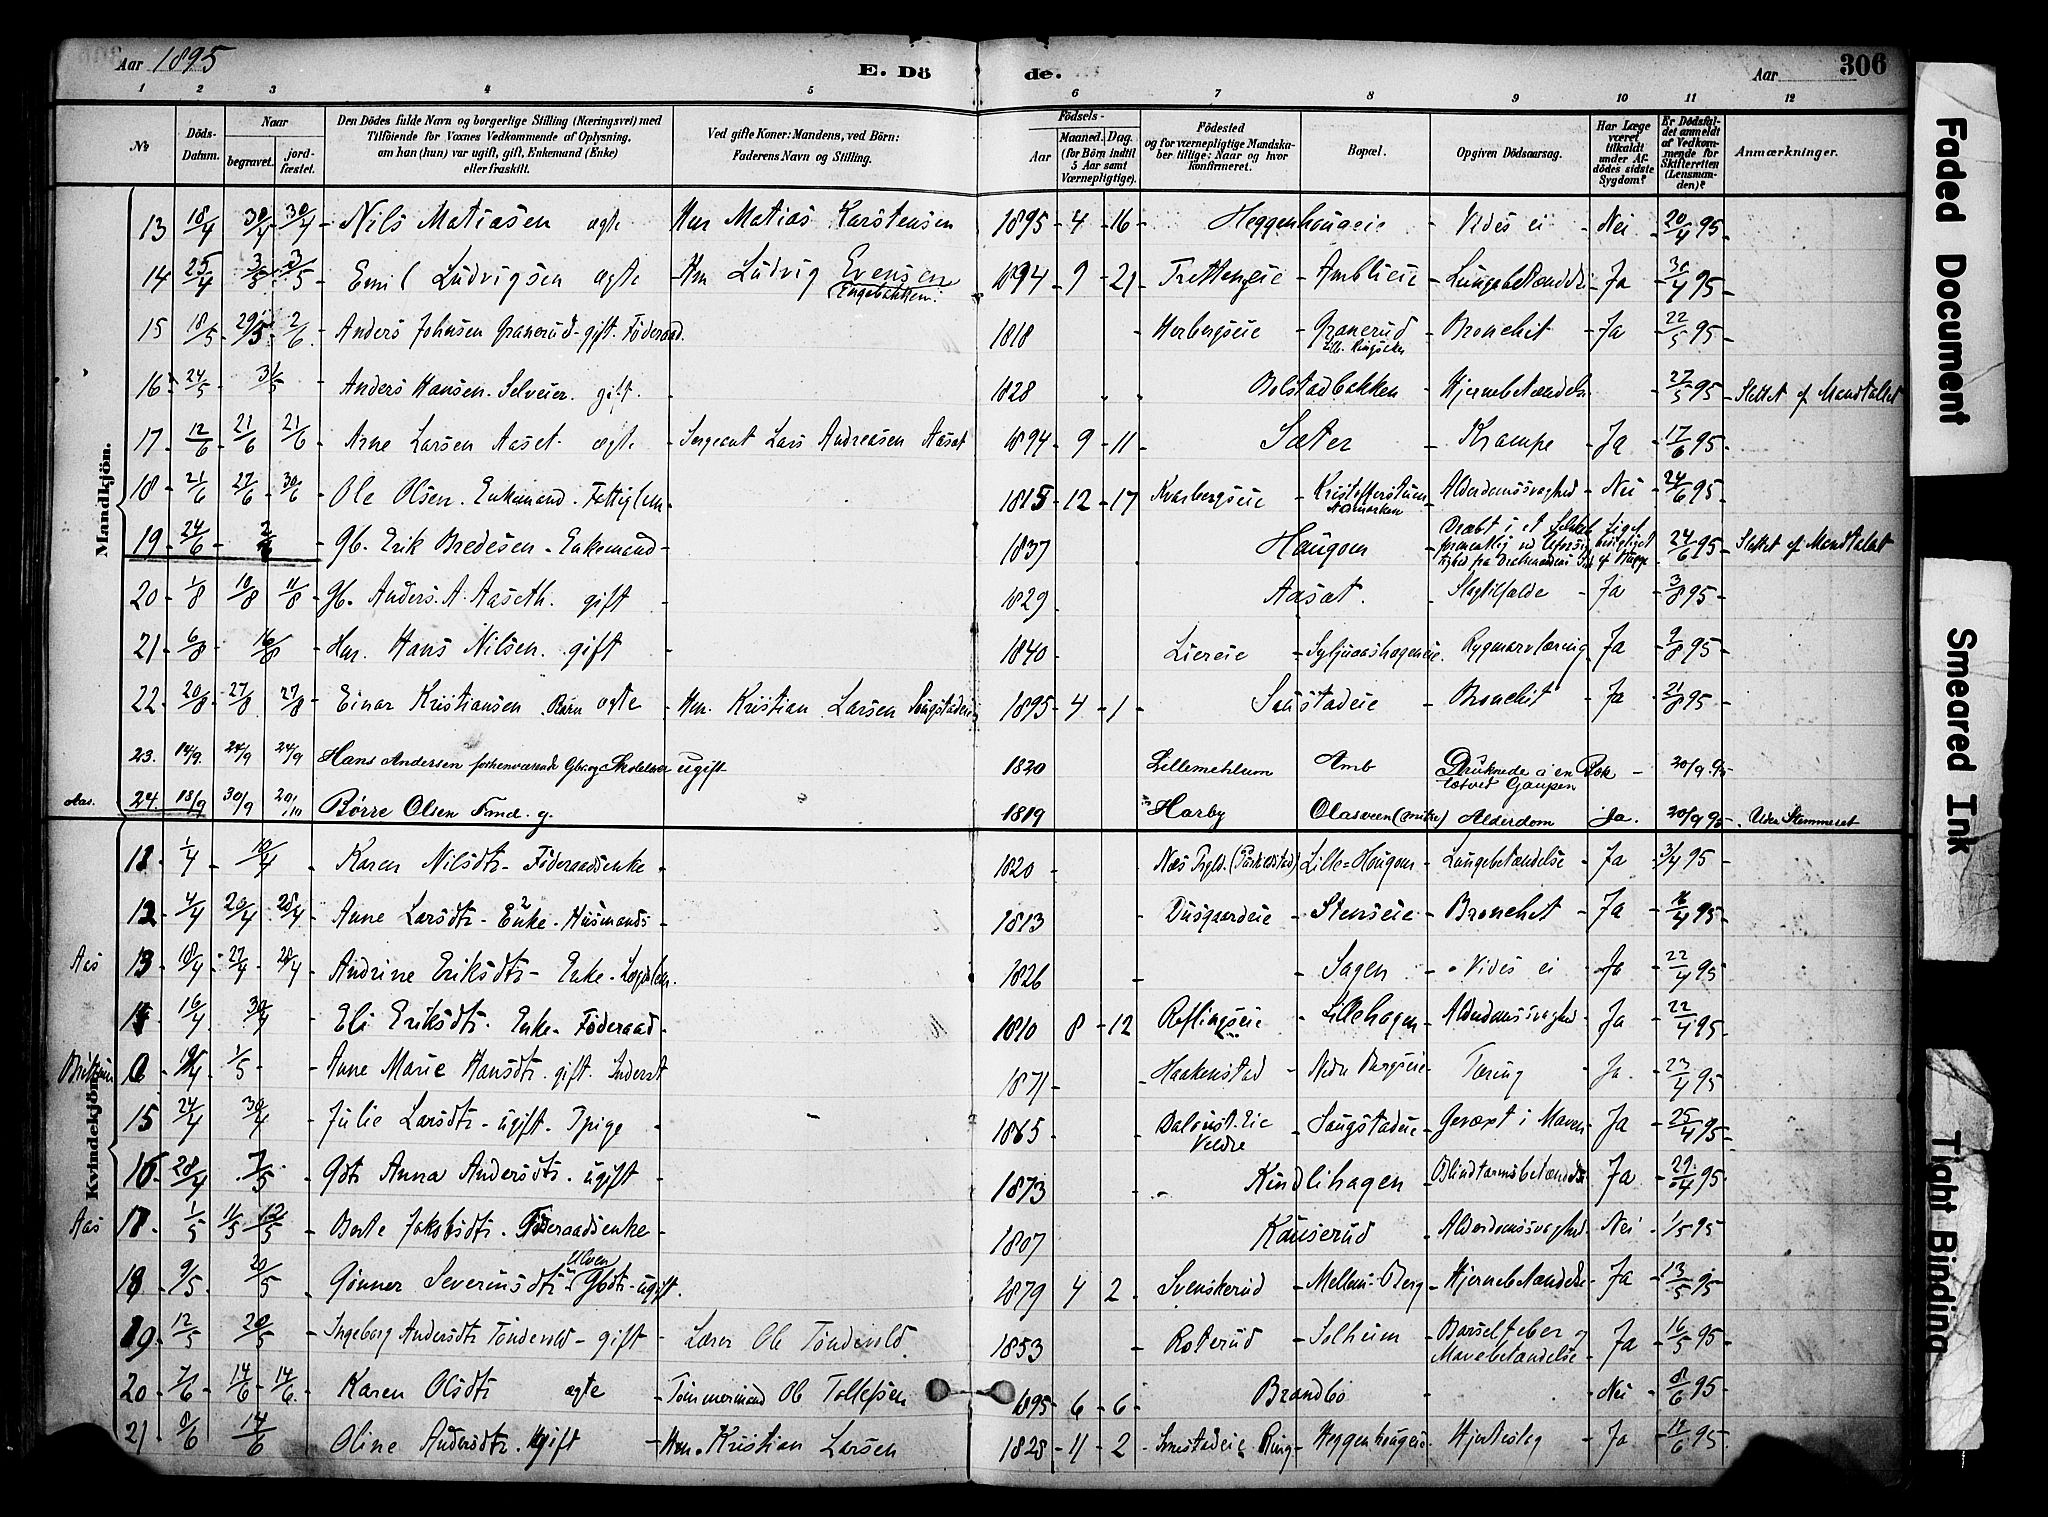 Aar 1895
E. Dö de.
Aar
306
1 2 3 4 5 6 7 8 9 10 11 12
No
Döds-Datum.
Naar
begravet.
jord-fæstet.
Den Dödes fulde Navn og borgerlige Stilling (Næringsvei) med
Tilföiende for Voxnes Vedkommende af Oplysning,
om han (hun) var ugift, gift, Enkemand (Enke)
eller fraskilt.
Ved gifte Koner: Mandens, ved Börn:
Faderens Navn og Stilling.
Födsels-
Aar
Maaned. Dag.
(for Börn indtil
5 Aar samt
Værnepligtige).
Födested
og for værnepligtige Mandska-
ber tillige: Naar og hvor
konfirmeret.
Bopæl.
Opgiven Dödsaarsag.
Har Læge
været
tilkaldt
under Af-
dödes sidste
Sygdom?
Er Dödsfal-
det anmeldt
af Vedkom-
mende for
Skifteretten
(Lensman-
den)?
Anmærkninger.
Mandkjön.
13 18/4 30/4 30/4 Nils Matiasen ægte Hm Matias Karstensen 1895 4 16 Heggenhougeie Vides ei Nei 20/4 95
14 25/4 3/5 3/5 Emil Ludvigsen ægte Hm Ludvig Evensen 1894 9 21 Trettengeie Amblieie Lungebetændelse Ja 30/4 95
(Engebakken)
15 18/5 29/5 2/6 Anders Johnsen Granerud gift Föderaad 1818 Herbergseie Granerud Bronchit Ja 22/5 95
Lill. Ringsaker
16 24/5 31/5 Anders Hansen Selveier gift 1828 Bolstadbakken Hjernebetændelse 27/5 95 Slettet af Mandtallet
17 12/6 21/6 21/6 Arne Larsen Aaset ægte Sergeant Lars Andreasen Aaset 1894 9 11 Sæter Krampe Ja 17/6 95
18 21/6 27/6 30/6 Ole Olsen Enkemand Fattiglem 1815 12 17 Kvarbergseie Kristofferstuen Alderdomssvaghed Nei 24/6 95
Almarken
19 24/6 2/7 Gb. Erik Bredesen Enkemand 1837 Haugom Dræbt i et 24/6 95 Slettet af Mandtallet
20 1/8 10/8 11/8 Gb. Anders A. Aaseth gift 1829 Aaset Slagtilfælde Ja 3/8 95
21 6/8 16/8 Hm. Hans Nilsen gift 1840 Liereie Syljuaashageneie Rygmarvtæring Ja 9/8 95
22 20/8 27/8 27/8 Einar Kristiansen Barn ægte Hm. Kristian Larsen Saugstadeie 1895 4 1 Saugstadeie Bronchit Ja 21/8 95
23. 14/9 24/9 24/9 Hans Andersen forhenværende Gbr. og Skolelærer ugift 1820 Lillemehlum Amb Druknede i en Bæk 20/9 95
tætved Gaupen
Aas. 24. 18/9 30/9 20/10 Børre Olsen Fmd. g. 1819 Harby Olasveen (nitre) Alderdom Ja. 20/9 95 Uden Stemmeret
Kvindekjön.
11 1/4 10/4 Karen Nilsdtr Föderaadsenke 1820 Næs Prgld. Lille-Hougom Lungebetændelse Ja 3/4 95
12 4/4 20/4 28/4 Anne Larsdtr Enke Husmands 1813 Dusgaardeie Stenseie Bronchit Ja 16/4 95
Aas 13 18/4 27/4 28/4 Andrine Eriksdtr Enke Lægdslem 1826 Sagen Vides ei Ja 22/4 95
14 16/4 30/4 Eli Eriksdtr Enke Föderaad 1810 8 12 Reflingseie Lillehagen Alderdomssvaghed Ja 22/4 95
0 19/4 1/5 Anne Marie Hansdtr gift Inderst 1871 Haakenstad Nedre Bergseie Tæring Ja. 23/4 95
15 24/4 30/4 Julie Larsdtr ugift Pige 1865 Dalbustseie Saugstadeie Gevæxt i Maven Ja 25/4 95
Veldre
16 28/4 7/5 Gdtr Anna Andersdtr ugift 1873 Kindlihagen Blindtarmsbetændelse Ja 29/4 95
Aas 17 1/5 11/5 12/5 Berte Jakobsdtr Föderaadsenke 1807 Kauserud Alderdomssvaghed Nei 1/5 95
18 9/5 20/5 Gunner Severinsdtr Ulven Gbdtr ugift 1879 4 2 Svenskerud Mellem-Berg Hjernebetændelse Ja 13/5 95
19 12/5 20/5 Ingeborg Andersdtr Töndevold gift Lærer Ole Töndevold 1853 Roterud Solheim Barselfeber og Ja 16/5 95
Mavebetændelse
20 7/6 14/6 14/6 Karen Olsdtr ægte Tömmermand Ole Tollefsen 1895 6 6 Brandbo Nei 8/6 95
21 8/6 14/6 Oline Andersdtr gift Hm. Kristian Larsen 1828 11 2 Smestadeie Ring Heggenhougeie Hjerteslag Ja 12/6 95
Faded Document
Smeared Ink
Tight Binding